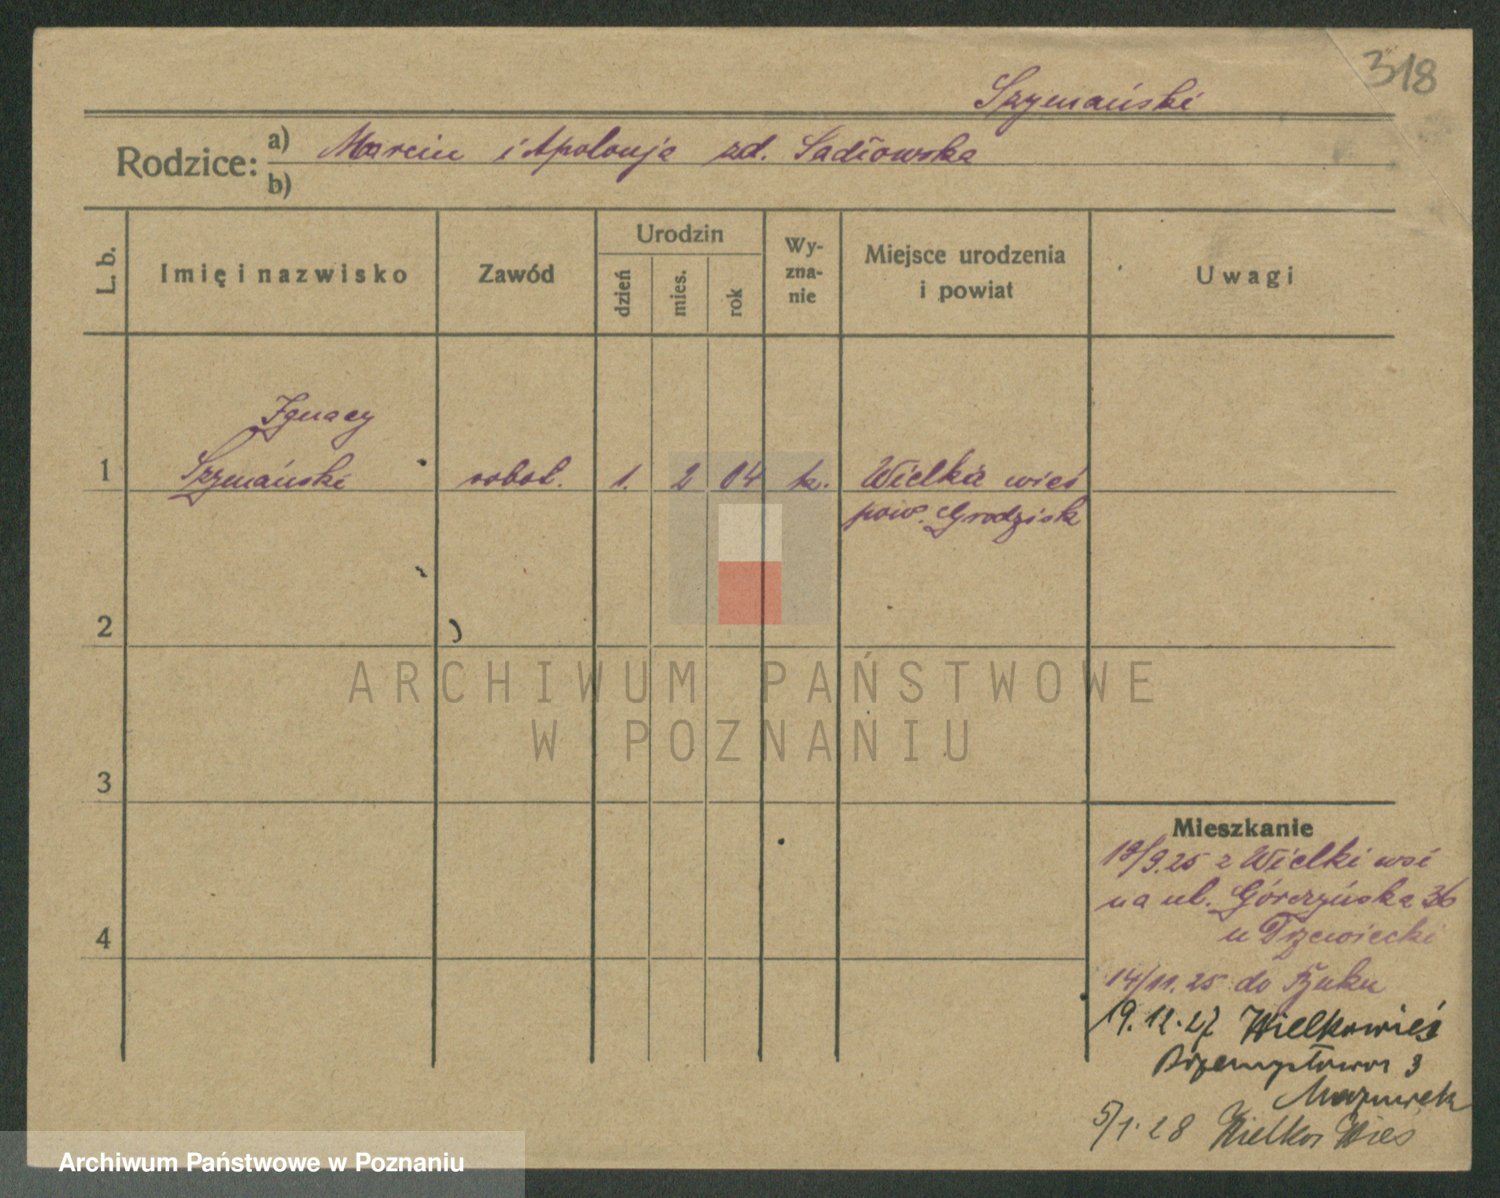 318
Szymański
Rodzice:
a) Marcin i Apolonja zd. Sadłowska
b)
L. b.
Imię i nazwisko
Zawód
Urodzin
dzień
mies.
rok
Wy-
zna-
nie
Miejsce urodzenia
i powiat
Uwagi
Ignacy
1 Szymański robot. 1. 2 04 k. Wielka wieś
pow. Grodzisk
2
3
4
Mieszkanie
19/9.25 z Wielki wsi
na ul. Górczyńska 36
u Trzewiecki
14/11.25 do Buku
19.12.27 Wielkawieś
Przemysłowa 3
Mazurek
5/1.28 Wielka Wieś
ARCHIWUM PAŃSTWOWE
W POZNANIU
Archiwum Państwowe w Poznaniu